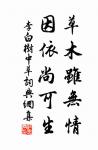 草木雖無情
因依尚可生
李白樹中草詞典網集